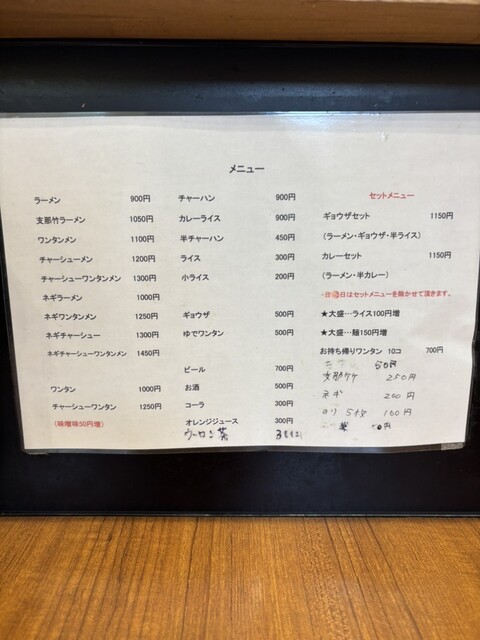 メニュー
ラーメン 900円
支那竹ラーメン 1050円
ワンタンメン 1100円
チャーシューメン 1200円
チャーシューワンタンメン 1300円
ネギラーメン 1000円
ネギワンタンメン 1250円
ネギチャーシュー 1300円
ネギチャーシューワンタンメン 1450円
ワンタン 1000円
チャーシューワンタン 1250円
(味噌味50円増)
チャーハン 900円
カレーライス 900円
半チャーハン 450円
ライス 300円
小ライス 200円
ギョウザ 500円
ゆでワンタン 500円
ビール 700円
お酒 500円
コーラ 300円
オレンジジュース 300円
ウーロン茶
セットメニュー
ギョウザセット 1150円
(ラーメン・ギョウザ・半ライス)
カレーセット 1150円
(ラーメン・半カレー)
日はセットメニューを除かせて頂きます。
★大盛…ライス100円増
★大盛…麺150円増
お持ち帰りワンタン 10コ 700円
50円
支那竹 250円
ネギ 200円
のり 100円